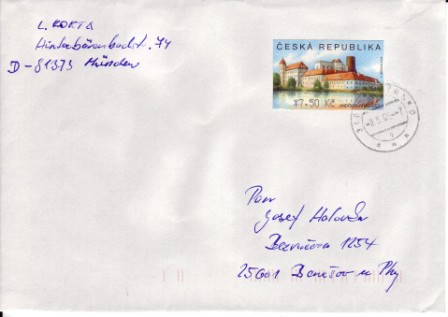 L. KORTA
Hinterbärenbadstr. 74
D-81373 München
ČESKÁ REPUBLIKA
7.50 Kč
Pan
Josef Holoubek
1254
25601 Benešov u Phy